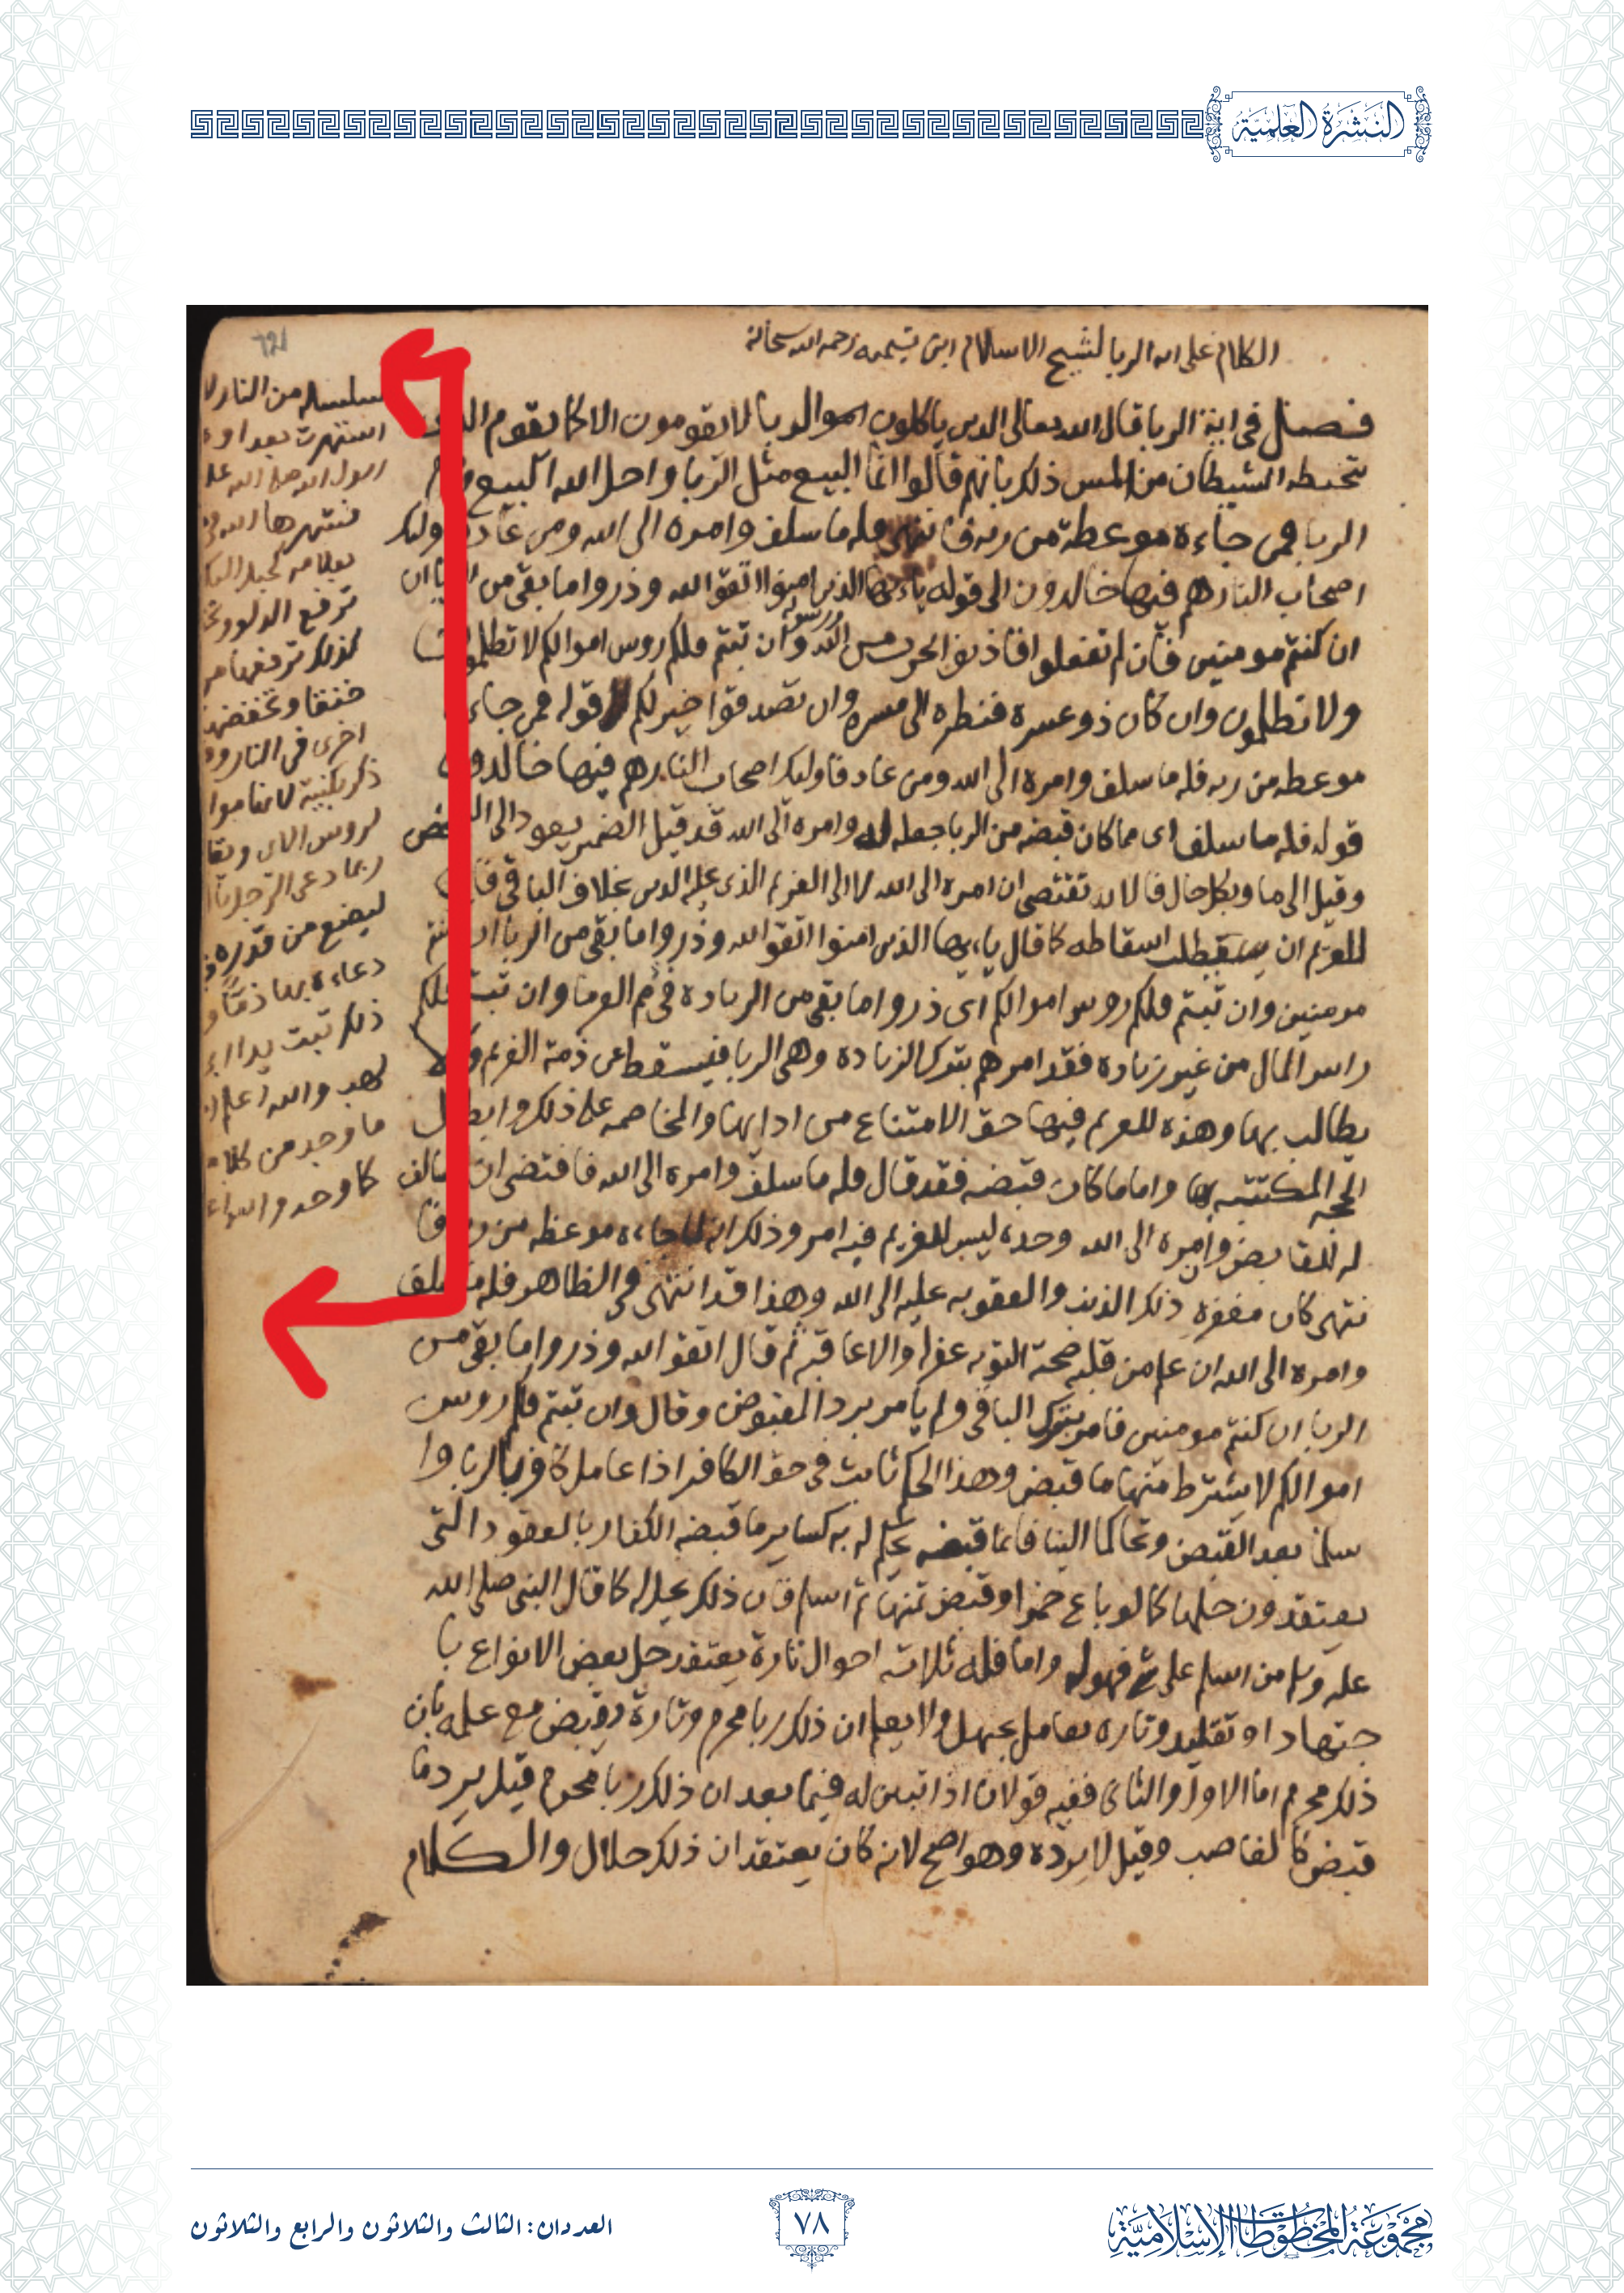 النشرة العلمية
الكلام على اية الربا لشيخ الاسلام ابن تيميه رحمه الله سبحانه
فصل في اية الربا قال الله تعالى الدين ياكلون الربا لا يقومون الا كما يقوم
يتخبطه الشيطان من المس ذلك بانهم قالوا انما البيع مثل الربا واحل الله البيع
الربا فمن جاءه موعظة من ربه فانتهى فله ما سلف وامره الى الله ومن عاد
اصحاب النار هم فيها خالدون الى قوله ياءيها الذين امنوا اتقوا الله وذروا ما بقي من
ان كنتم مومنين فان لم تفعلوا فاذنوا بحرب من الله ورسوله وان تبتم فلكم روس اموالكم لا تظلمون
ولا تظلمون وان كان ذو عسرة فنظرة الى ميسره وان تصدقوا خير لكم قوله فمن جاءه
موعظه من ربه فله ما سلف وامره الى الله ومن عاد فاوليك اصحاب النار هم فيها خالدون
قوله فله ما سلف اى مما كان قبضه من الربا جعله له وامره الى الله قد قيل الضمير يعود الى الشخص
وقيل الى ما وبكل حال فالايه تقتضي ان امره الى الله لا الى الغريم الذي عليه الدين بخلاف الباقي
للغريم ان اسقاطه كما قال ياءيها الذين امنوا اتقوا الله وذروا ما بقي من الربا ان كنتم
مومنين وان تبتم فلكم روس اموالكم اي ذروا ما بقي من الزياده في ذمم الغرما وان تبتم فلكم
راس المال من غير زياده فقد امرهم بترك الزياده وهي الربا فيسقط عن ذمة الغريم ولا
يطالب بها وهذه للغريم فيها حق الامتناع من ادايها والمخاصمه على ذلك وابطال
الحجه المكتتبه بها واما ما كان قبضه فقد قال فله ما سلف وامره الى الله فاقتضى ان السالف
له للقابض وامره الى الله وحده ليس للغريم فيه امر وذلك انه لما جاءه موعظه من ربه فا
نتهى كان مغفرة ذلك الذنب والعقوبه عليه الى الله وهذا قد انتهى في الظاهر فله ما سلف
وامره الى الله ان علم من قلبه صحة التوبه غفر له والا عاقبه ثم قال اتقوا الله وذروا ما بقي من
الربا ان كنتم مومنين فامر بترك الباقي ولم يامر برد المقبوض وقال وان تبتم فلكم روس
اموالكم لا يشترط منها ما قبض وهذا الحكم ثابت في حق الكافر اذا عامل كافرا بالربا وا
سلما بعد القبض وتحاكما الينا فان ما قبضه يحكم له به كساير ما قبضه الكفار بالعقود التي
يعتقدون حلها كما لو باع خمرا وقبض ثمنها ثم اسلم فان ذلك يحل له كما قال النبي صلى الله
عليه وسلم من اسلم على شي فهو له واما فله ثلاثه احوال تارة يعتقد حل بعض الانواع با
جتهاد او تقليد وتاره يعامل بجهل ولا يعلم ان ذلك ربا محرم وتارة يقبض مع علمه بان
ذلك محرم اما الاول والثاني ففيه قولان اذا تبين له فيما بعد ان ذلك ربا محرم قيل يرد ما
قبض كالغاصب وقيل لا يرده وهو اصح لانه كان يعتقد ان ذلك حلال والكلام
سلسله من النار
اشتهرت بعد
رسول الله صلى الله عل
ترفع الدلو
كذلك ترفعها
اخرى في النار
ذكر بكنيته
لروس
ربما دعى الرجل
ليضع من قدره
دعاءه بها ذما و
ذلك تبت يدا
لهب والله اعلم
ما وجد من كلا
كما وجد والله
مجموعة المخطوطات الإسلامية
٧٨
العددان: الثالث والثلاثون والرابع والثلاثون